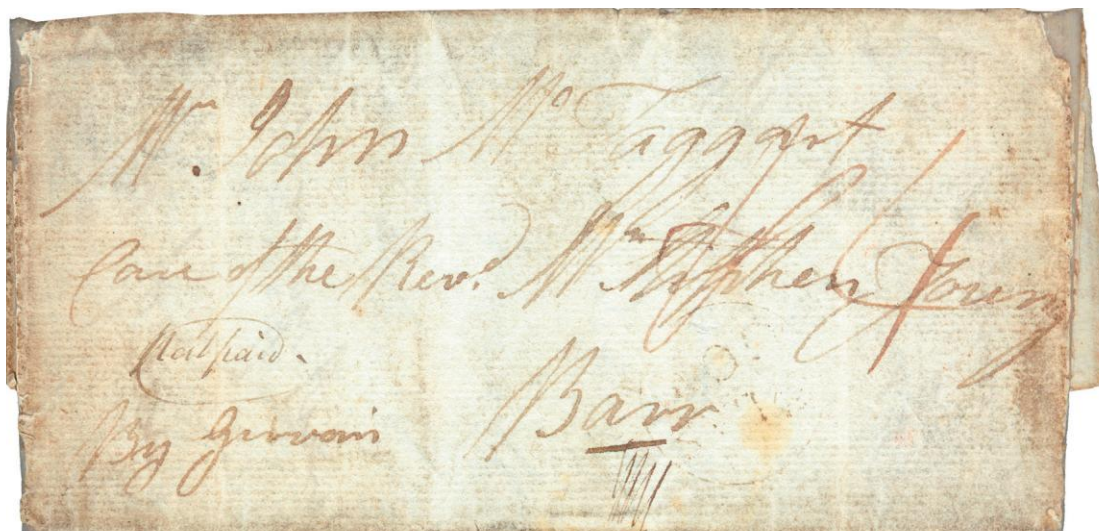 Mr. John Mc Taggart
Care of the Revd. Mr. Stephen Young
Post paid.
By Girvan
Barr